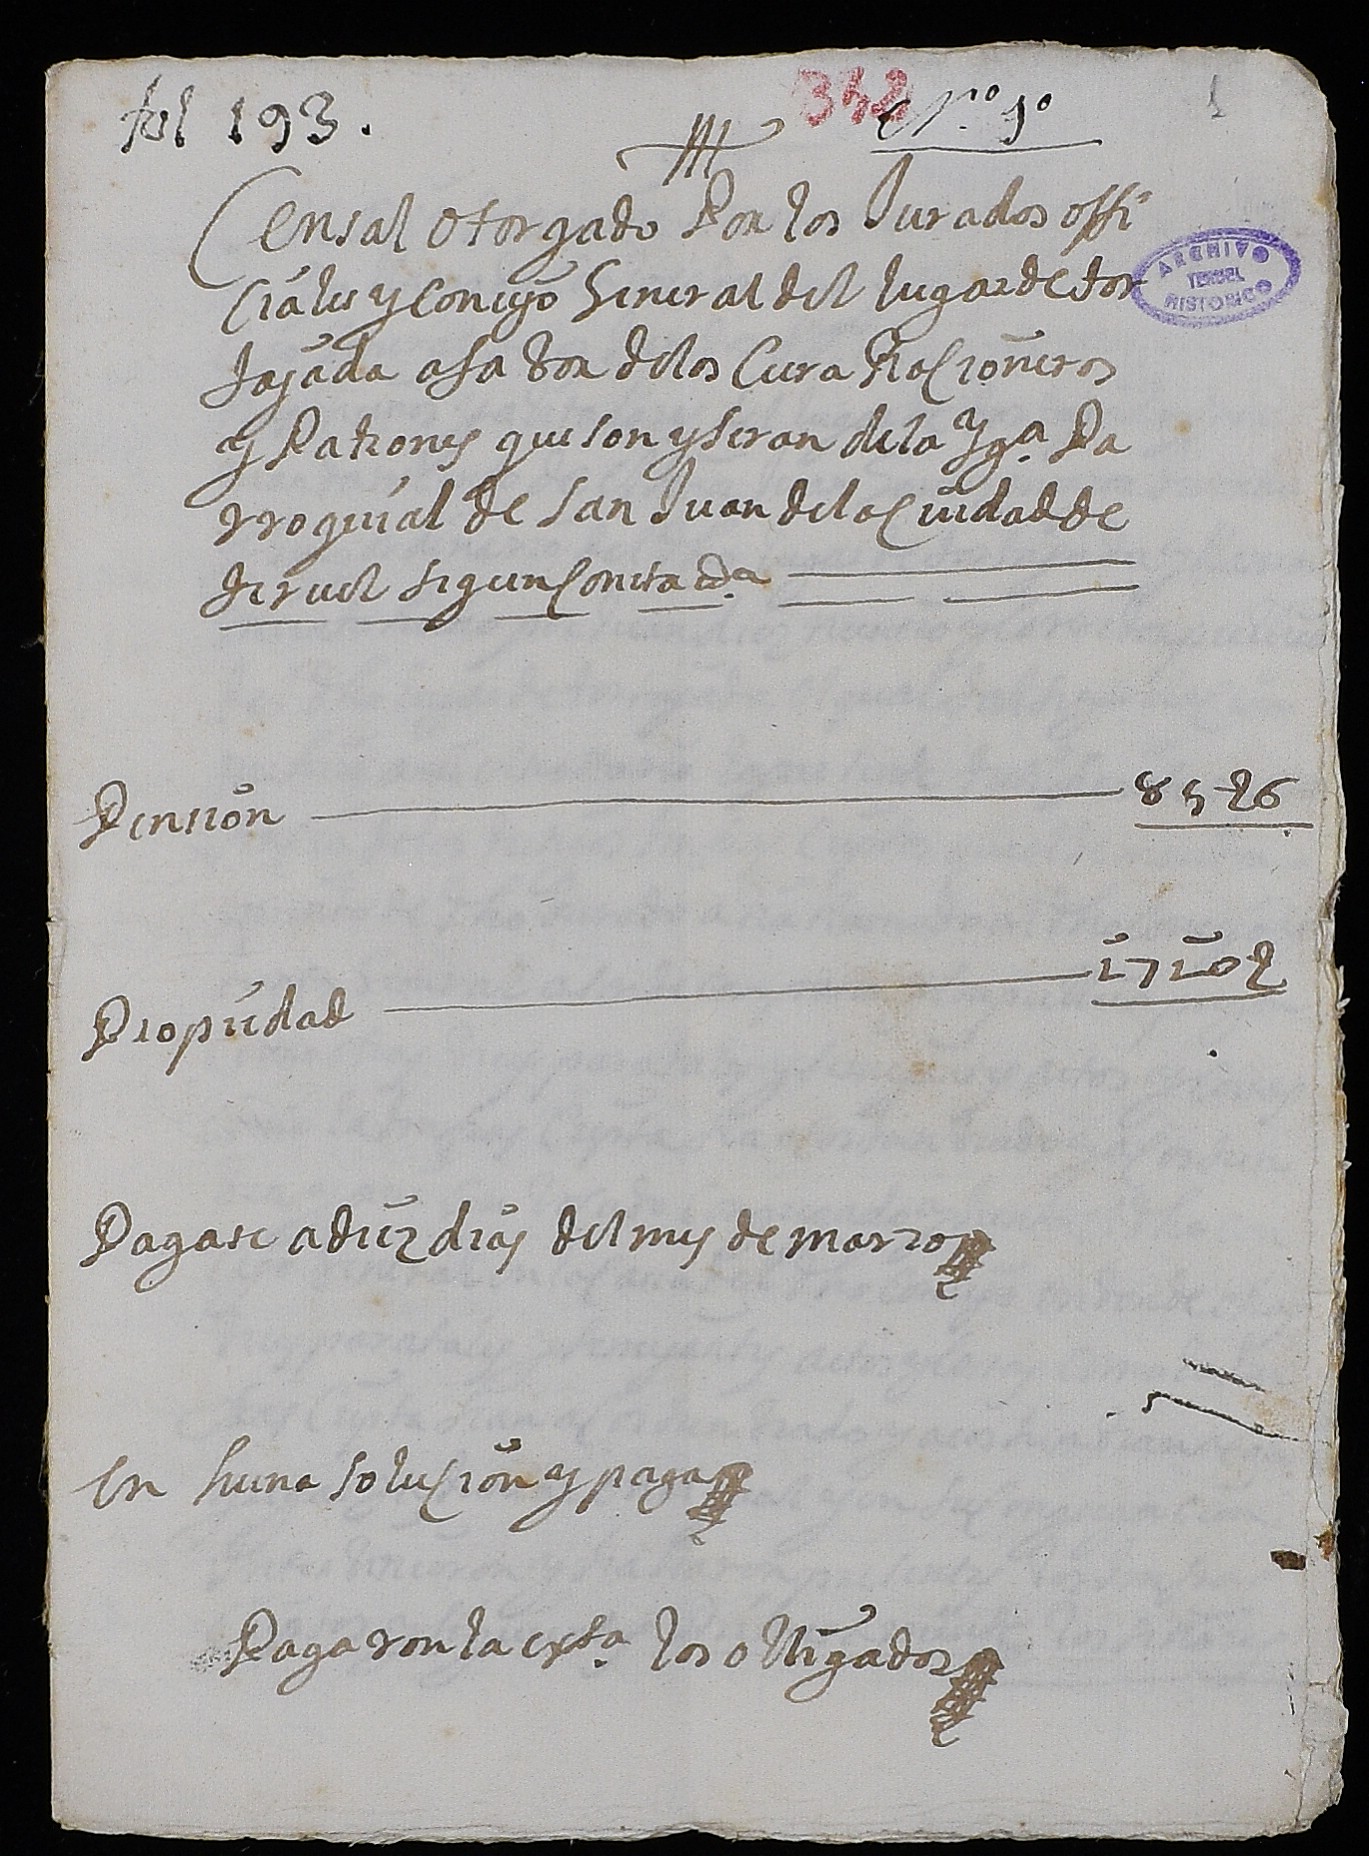 fol 193.
342 Nº. 1º 1
Censal otorgado Por los Jurados offi
ciales y Concejo General del lugar de tor
ARCHIVO
TERUEL
HISTORICO
tajada afabor delos Cura Racioneros
y Patrones que son y seran de la Yga. Pa
rroquial de San Juan dela Ciudad de
teruel segun Consta
Pension
Propiedad
Pagase a diez dias del mes de marzo
en huna solucion y paga
Pagaron la exta. los obligados